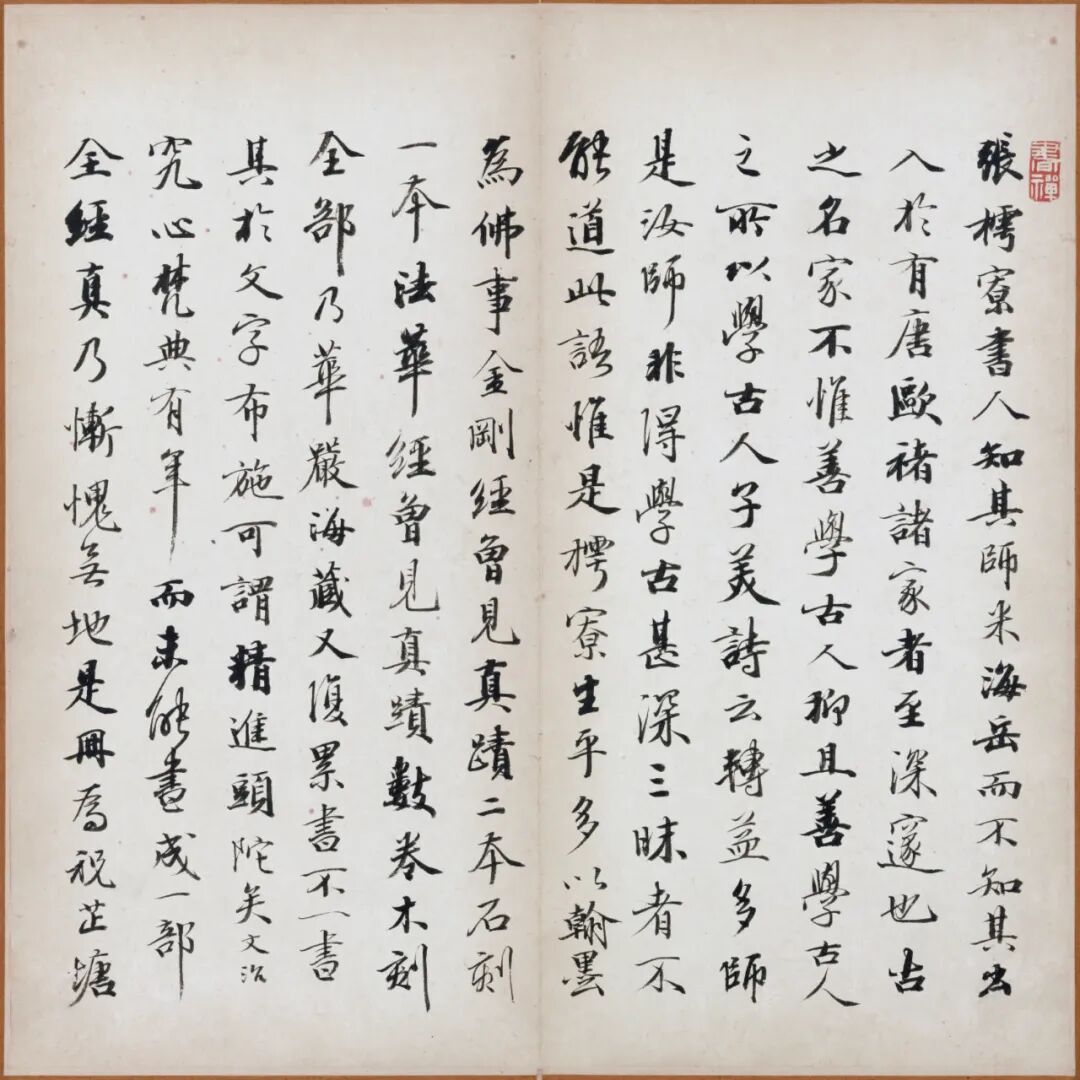 書禪
張樗寮書人知其師米海岳而不知其出
入於有唐歐褚諸家者至深邃也古
之名家不惟善學古人抑且善學古人
之所以學古人子美詩云轉益多師
是汝師非得學古甚深三昧者不
能道此語惟是樗寮生平多以翰墨
為佛事金剛經曾見真蹟二本石刻
一本法華經曾見真蹟數卷木刻
全部乃華嚴海藏又復累書不一書
其於文字布施可謂精進頭陀矣文治
究心梵典有年而未能書成一部
全經真乃慚愧無地是冊為祝芷塘